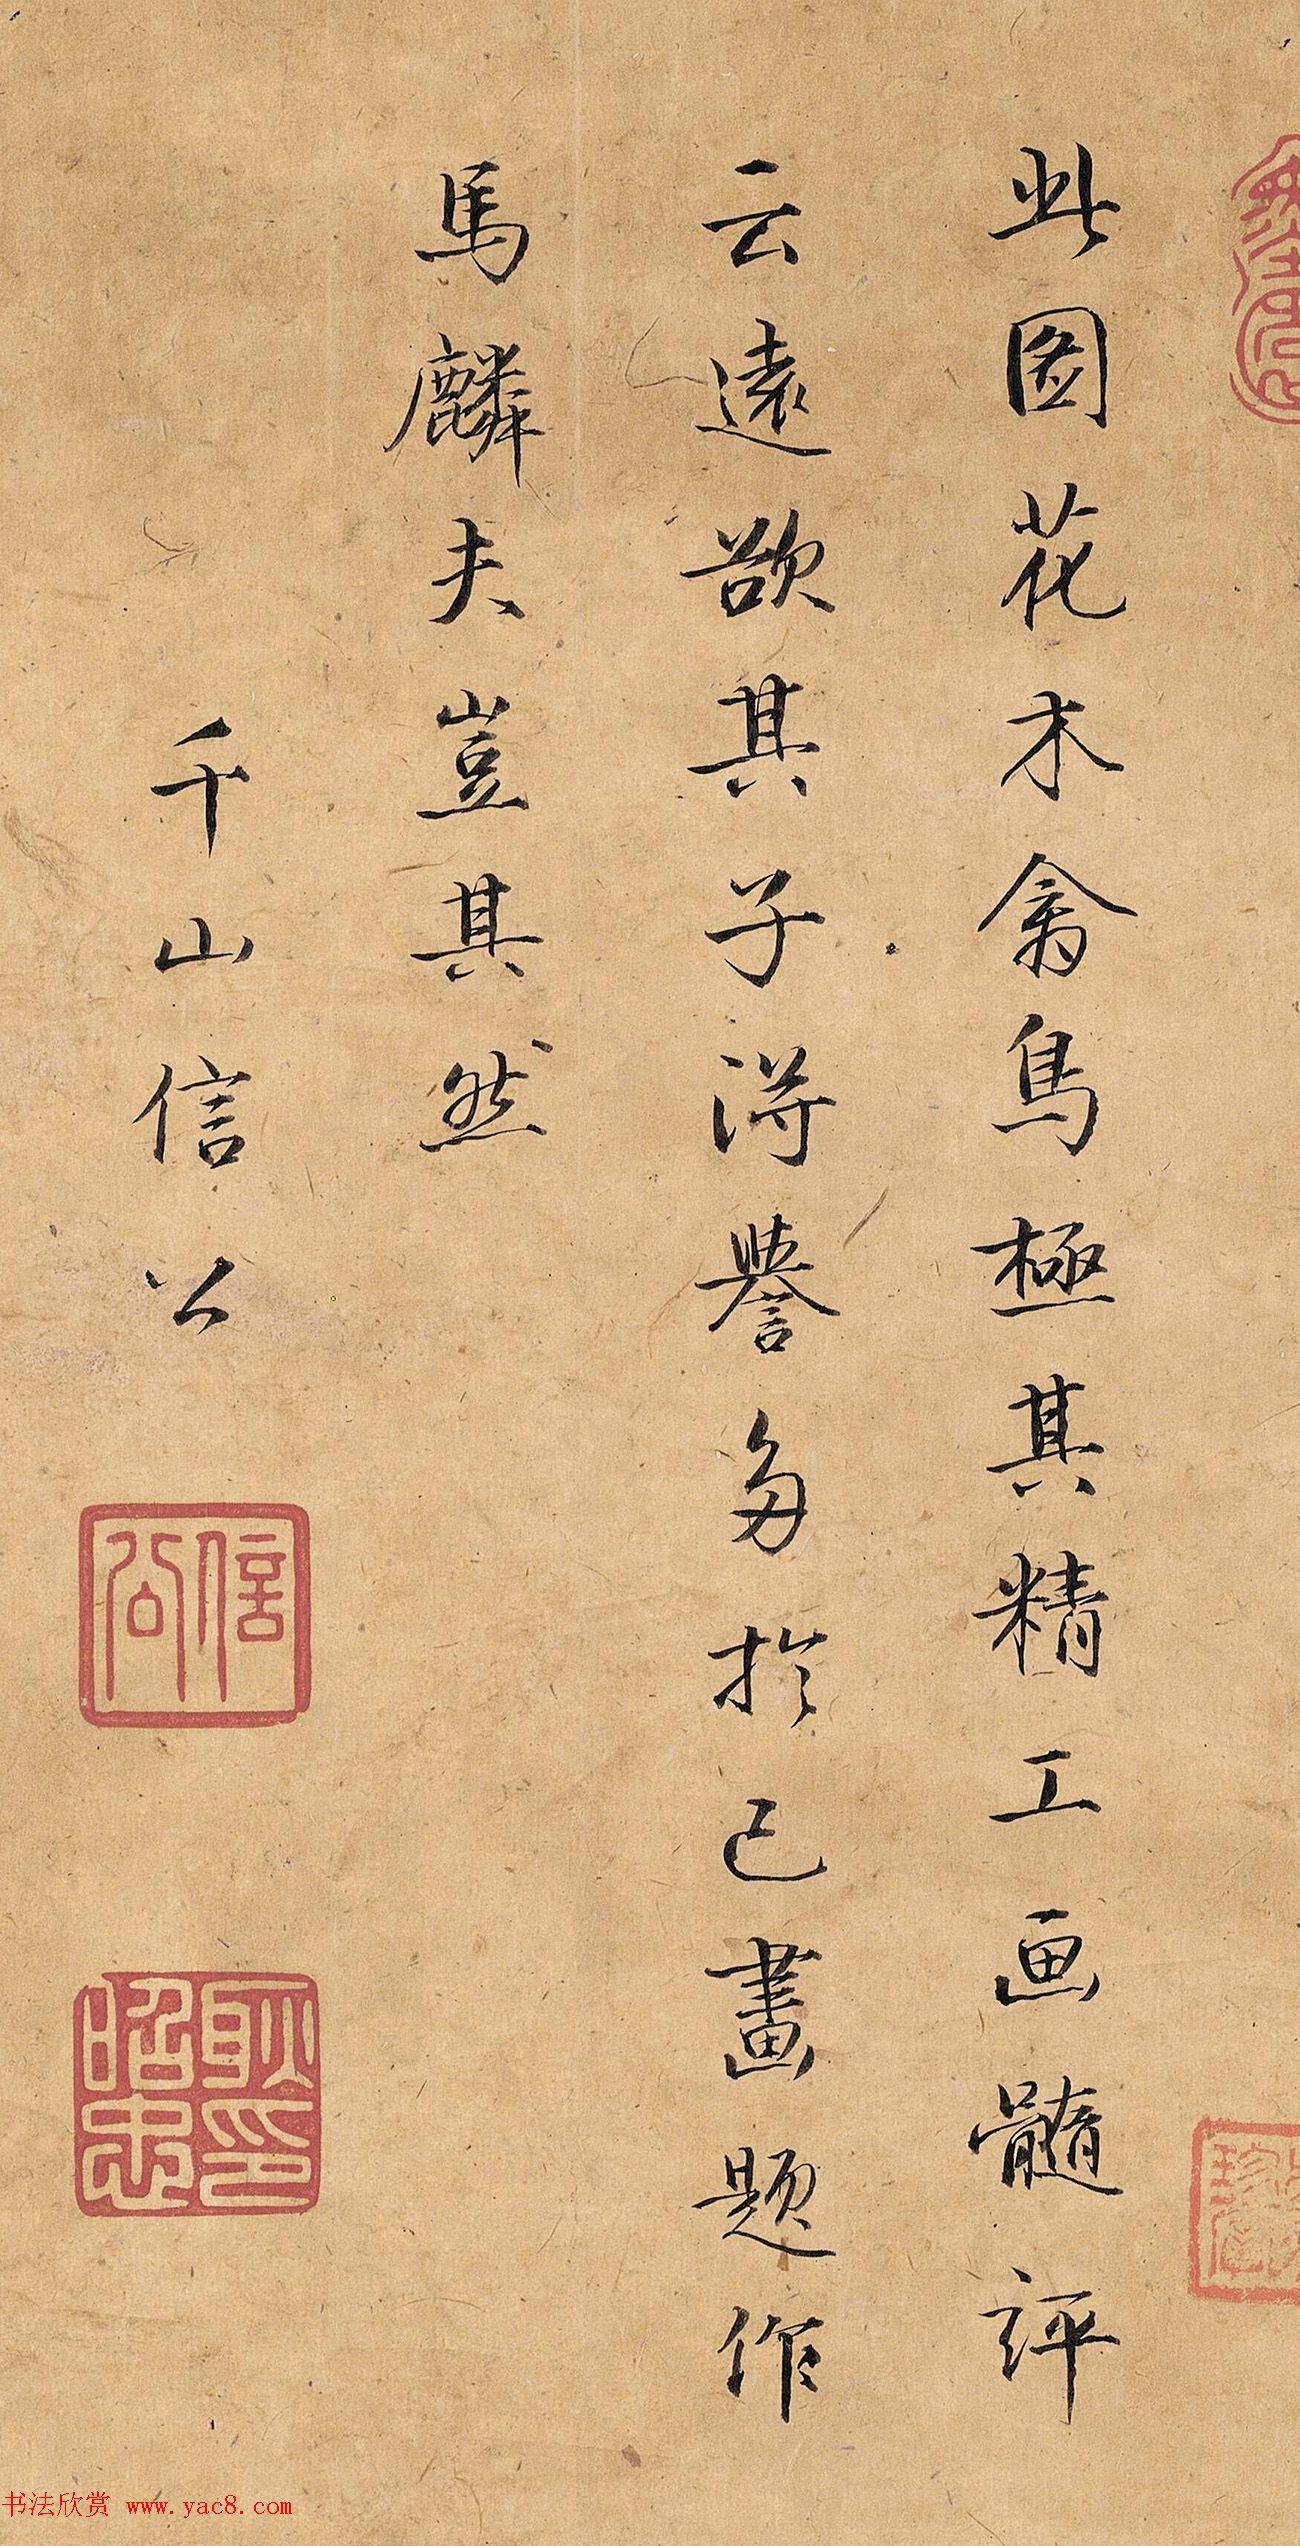 此图花木禽鳥極其精工画髓評
云遠欲其子得譽多於己畫題作
馬麟夫豈其然
千山信公
信公
耿昭忠印
书法欣赏 www.yac8.com